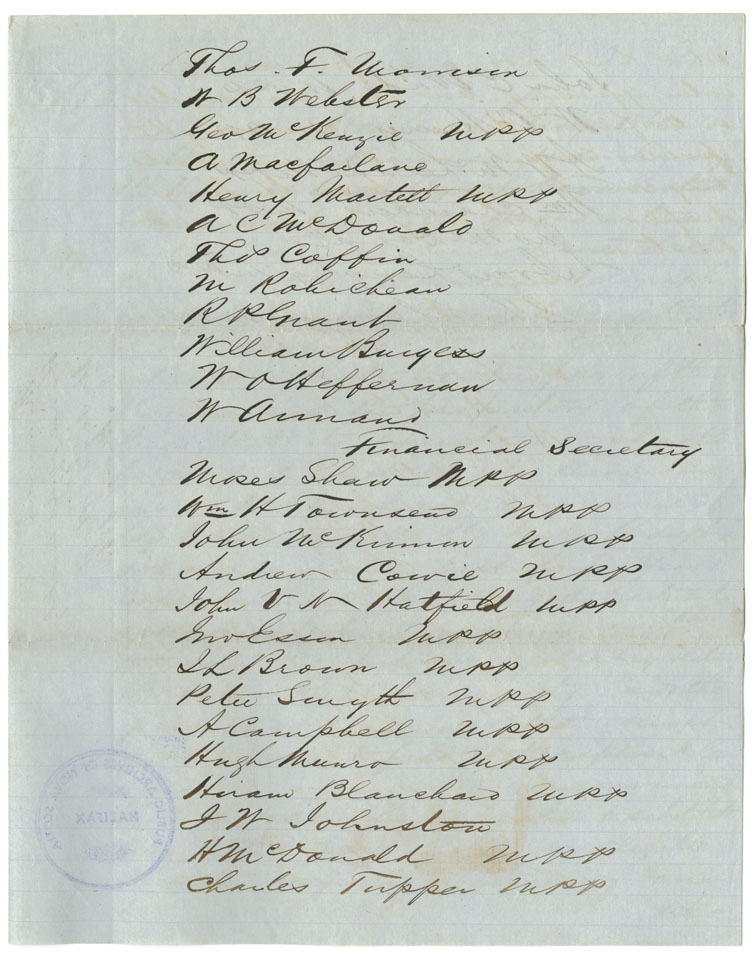 Thos. F. Morrison
A B Webster
Geo McKenzie MPP
A Macfarlane
Henry Martell MPP
A C McDonald
Thos Coffin
M Robicheau
R P Grant
William Burgess
W O Heffernan
W Annand
Financial Secretary
Moses Shaw MPP
Wm H Townsend MPP
John McKinnon MPP
Andrew Cowie MPP
John V N Hatfield MPP
Jno Esson MPP
S L Brown MPP
Peter Smyth MPP
A Campbell MPP
Hugh Munro MPP
Hiram Blanchard MPP
J W Johnston
H McDonald MPP
Charles Tupper MPP
PUBLIC ARCHIVES OF NOVA SCOTIA
HALIFAX